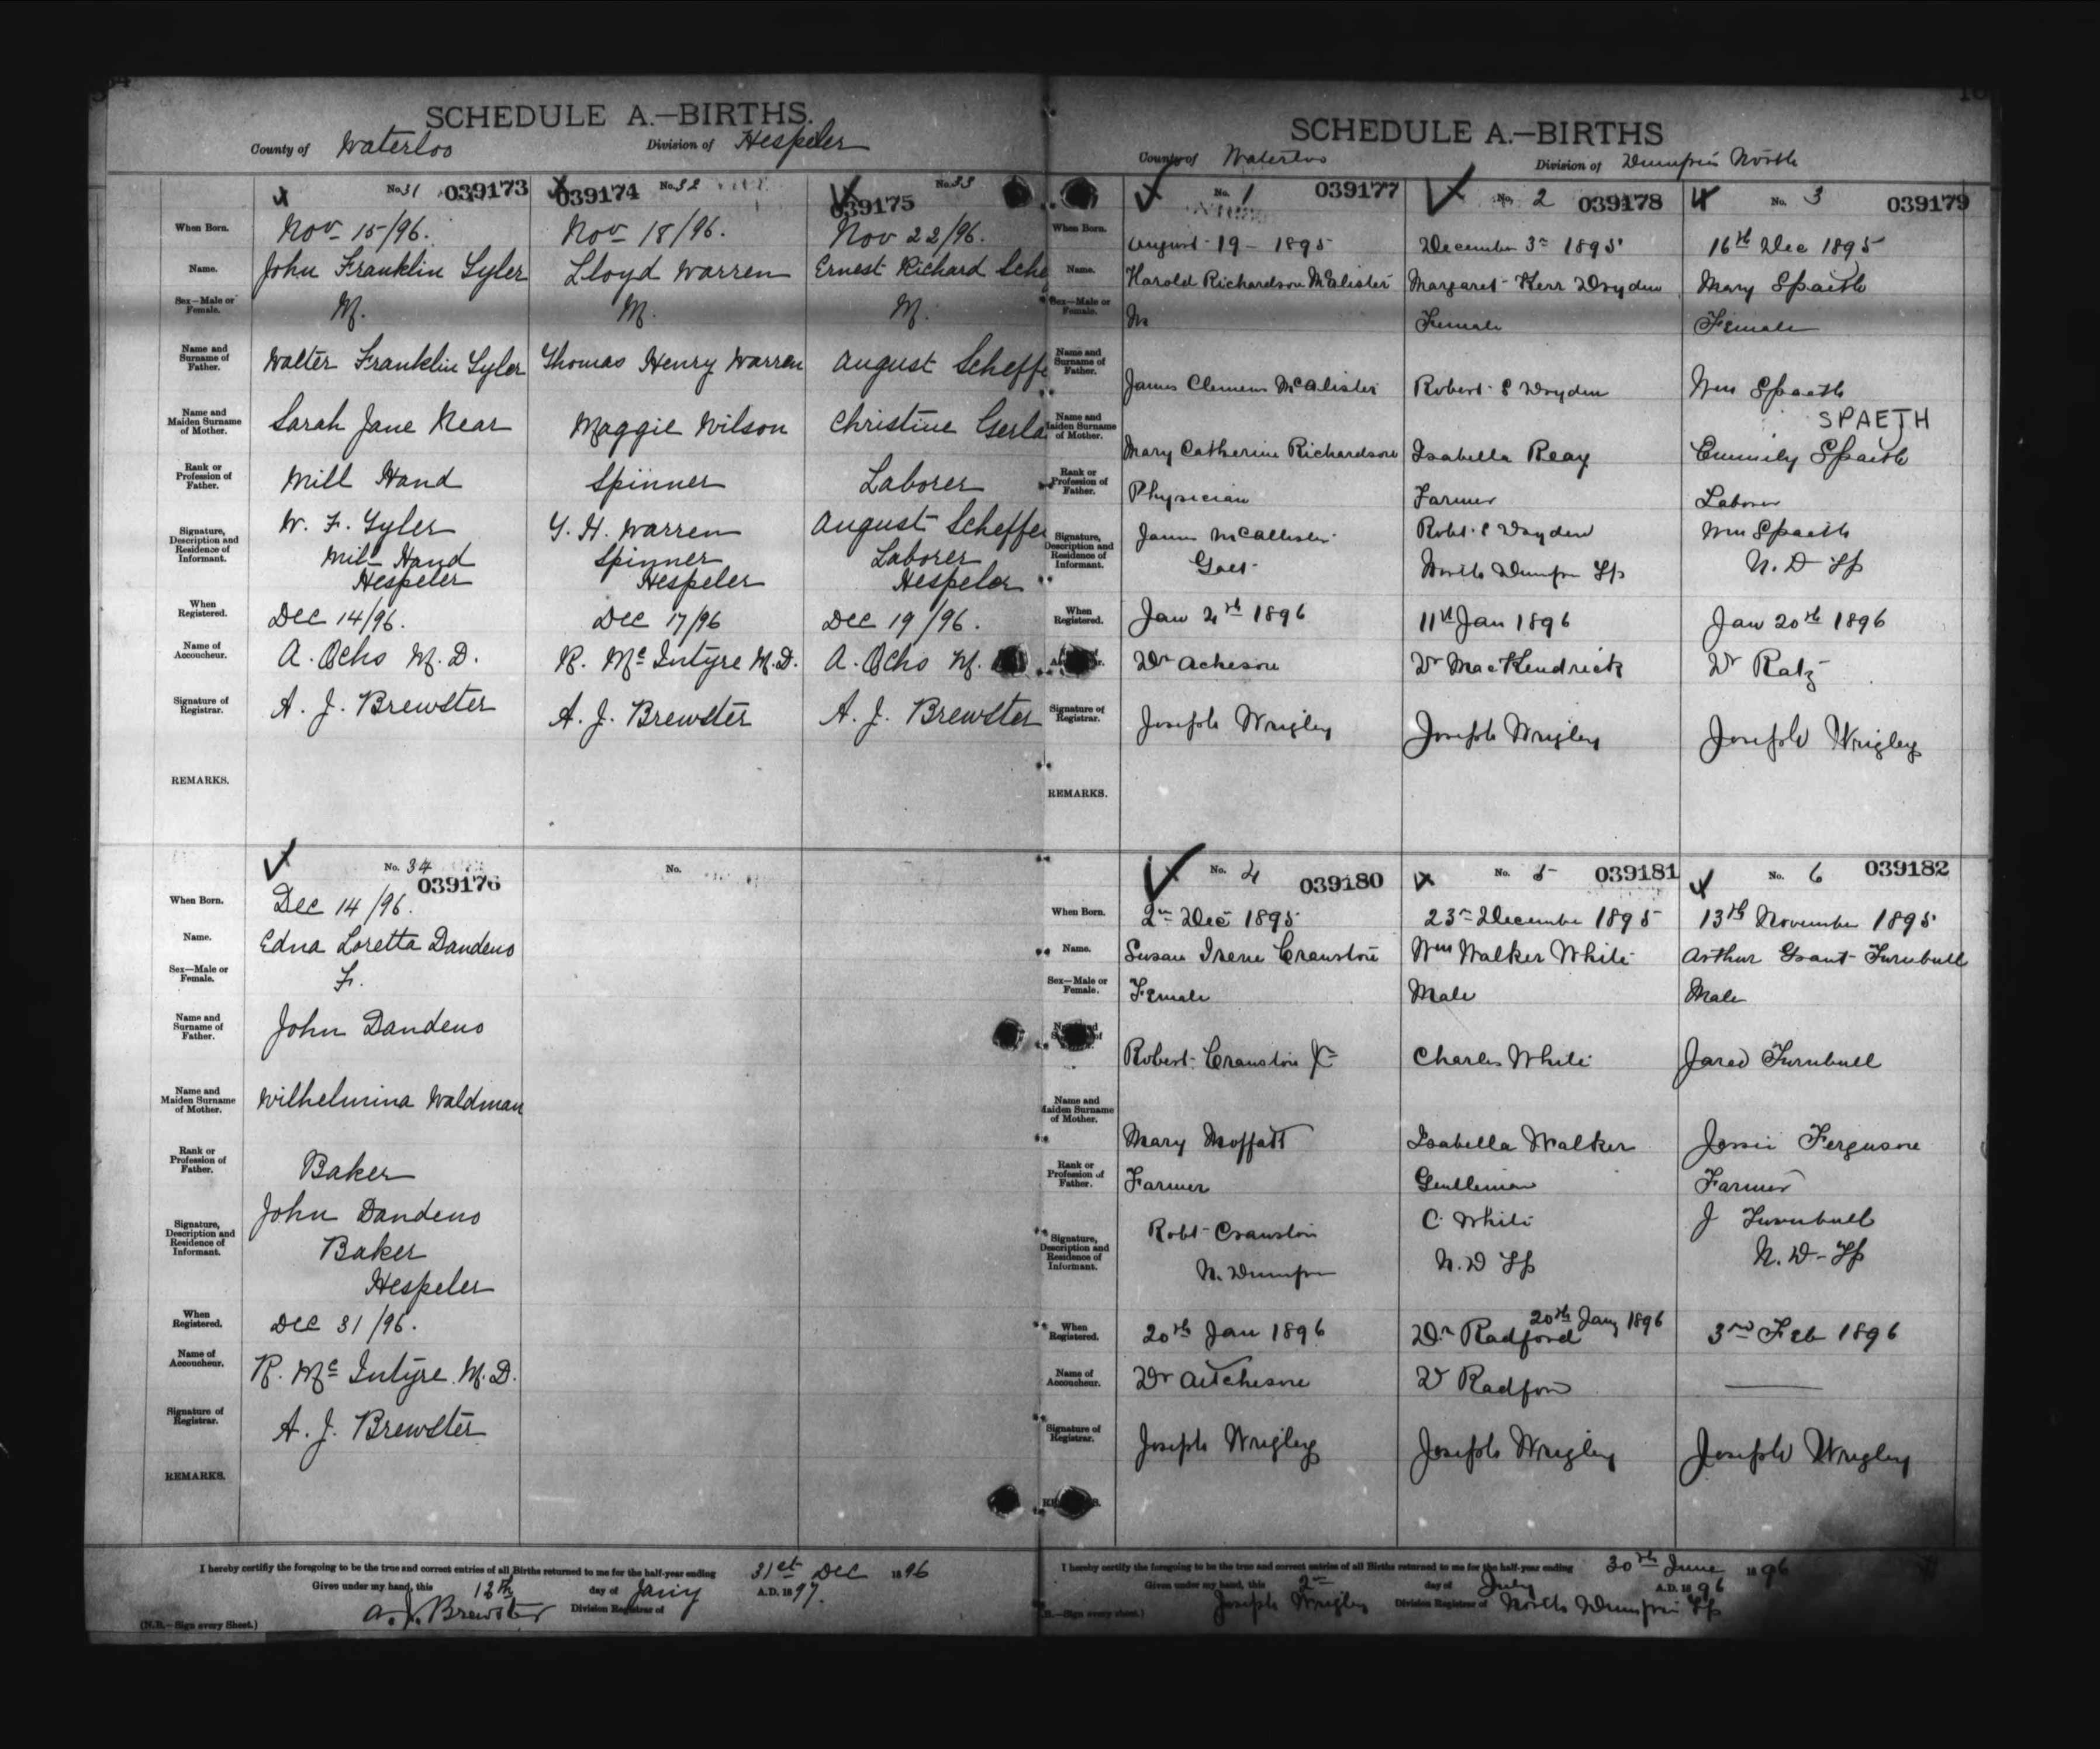 SCHEDULE A.—BIRTHS.
County of Waterloo Division of Hespeler
No. 31 039173
When Born. Nov 15/96.
Name. John Franklin Tyler
Sex—Male or Female. M.
Name and Surname of Father. Walter Franklin Tyler
Name and Maiden Surname of Mother. Sarah Jane Near
Rank or Profession of Father. Mill Hand
Signature, Description and Residence of Informant. W. F. Tyler
Mill Hand
Hespeler
When Registered. Dec 14/96.
Name of Accoucheur. A. Ochs M.D.
Signature of Registrar. A. J. Brewster
REMARKS.
039174 No. 32
Nov 18/96.
Lloyd Warren
M.
Thomas Henry Warren
Maggie Wilson
Spinner
T. H. Warren
Spinner
Hespeler
Dec 17/96
R. McIntyre M.D.
A. J. Brewster
No. 33
039175
Nov 22/96.
Ernest Richard Sche
M.
August Scheffe
Christine Gerla
Laborer
August Scheffe
Laborer
Hespeler
Dec 19/96.
A. Ochs M.
A. J. Brewster
No. 34
039176
When Born. Dec 14/96.
Name. Edna Loretta Dandeno
Sex—Male or Female. F.
Name and Surname of Father. John Dandeno
Name and Maiden Surname of Mother. Wilhelmina Waldman
Rank or Profession of Father. Baker
Signature, Description and Residence of Informant. John Dandeno
Baker
Hespeler
When Registered. Dec 31/96.
Name of Accoucheur. R. McIntyre M.D.
Signature of Registrar. A. J. Brewster
REMARKS.
No.
I hereby certify the foregoing to be the true and correct entries of all Births returned to me for the half-year ending 31st Dec 1896
Given under my hand, this 12th day of Jany A.D. 1897.
A. J. Brewster Division Registrar of
(N.B.—Sign every Sheet.)
SCHEDULE A.—BIRTHS
County of Waterloo Division of Dumfries North
No. 1 039177
When Born. August 19 - 1895
Name. Harold Richardson McAlister
Sex—Male or Female. M
Name and Surname of Father. James Clemens McAlister
Name and Maiden Surname of Mother. Mary Catherine Richardson
Rank or Profession of Father. Physician
Signature, Description and Residence of Informant. James McCallister
Galt
When Registered. Jan 4th 1896
Dr Acheson
Signature of Registrar. Joseph Wrigley
REMARKS.
No. 2 039178
December 3rd 1895
Margaret Kerr Dryden
Female
Robert S Dryden
Isabella Reay
Farmer
Robt S Dryden
North Dumfrs Tp
11th Jan 1896
Dr MacKendrick
Joseph Wrigley
No. 3 039179
16th Dec 1895
Mary Spaeth
Female
Wm Spaeth
SPAETH
Emmily Spaeth
Laborer
Wm Spaeth
N. D Tp
Jan 20th 1896
Dr Ratz
Joseph Wrigley
No. 4 039180
When Born. 2nd Dec 1895
Name. Susan Irene Cranston
Sex—Male or Female. Female
Robert Cranston Jr
Name and Maiden Surname of Mother. Mary Moffatt
Rank or Profession of Father. Farmer
Signature, Description and Residence of Informant. Robt Cranston
N. Dumfrs
When Registered. 20th Jan 1896
Name of Accoucheur. Dr Aitcheson
Signature of Registrar. Joseph Wrigley
No. 5 039181
23rd December 1895
Wm Walker White
Male
Charles White
Isabella Walker
Gentleman
C. White
N. D Tp
20th Jany 1896
Dr Radford
Dr Radford
Joseph Wrigley
No. 6 039182
13th November 1895
Arthur Grant Turnbull
Male
Jared Turnbull
Jessie Ferguson
Farmer
J Turnbull
N. D- Tp
3rd Feb 1896
Joseph Wrigley
I hereby certify the foregoing to be the true and correct entries of all Births returned to me for the half-year ending 30th June 1896
Given under my hand, this 2nd day of July A.D. 1896
Joseph Wrigley Division Registrar of North Dumfries Tp